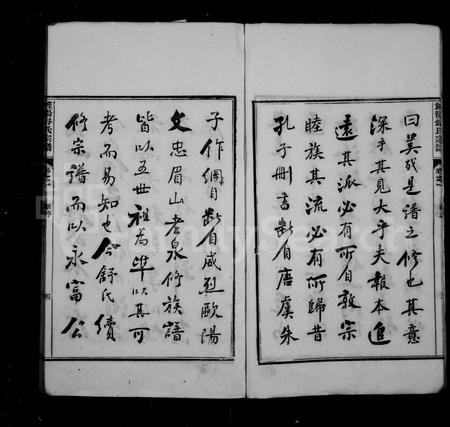 曰美哉是譜之修也其意
深乎其見大乎夫報本追
遠其派必有所自敦宗
睦族其流必有所歸昔
孔子刪書斷自唐虞朱
子作綱目斷自威烈歐陽
文忠眉山老泉修族譜
皆以五世祖為準以其可
考而易知也今舒氏續
修宗譜而以永富公